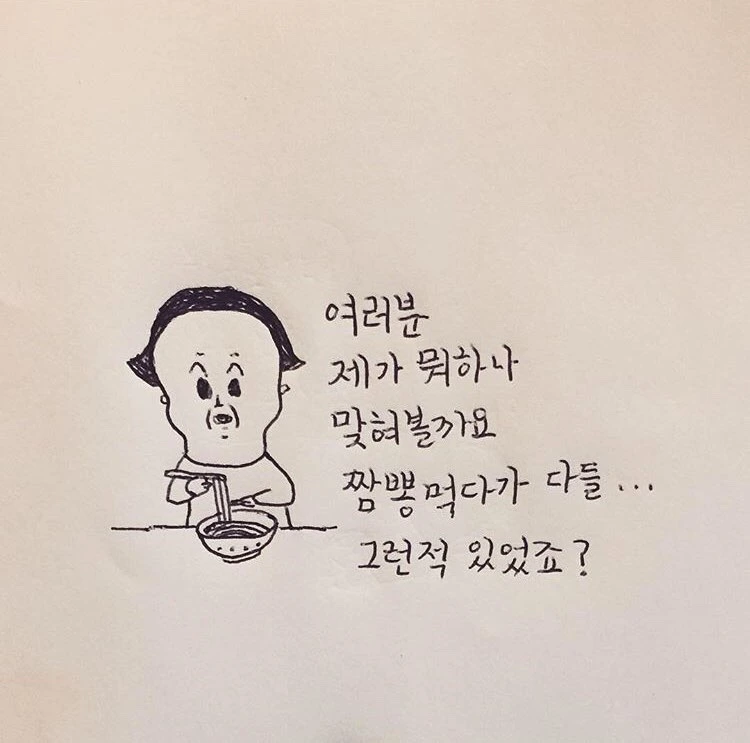 여러분
제가 뭐하나
맞혀볼까요
짬뽕먹다가 다들...
그런적 있었죠?